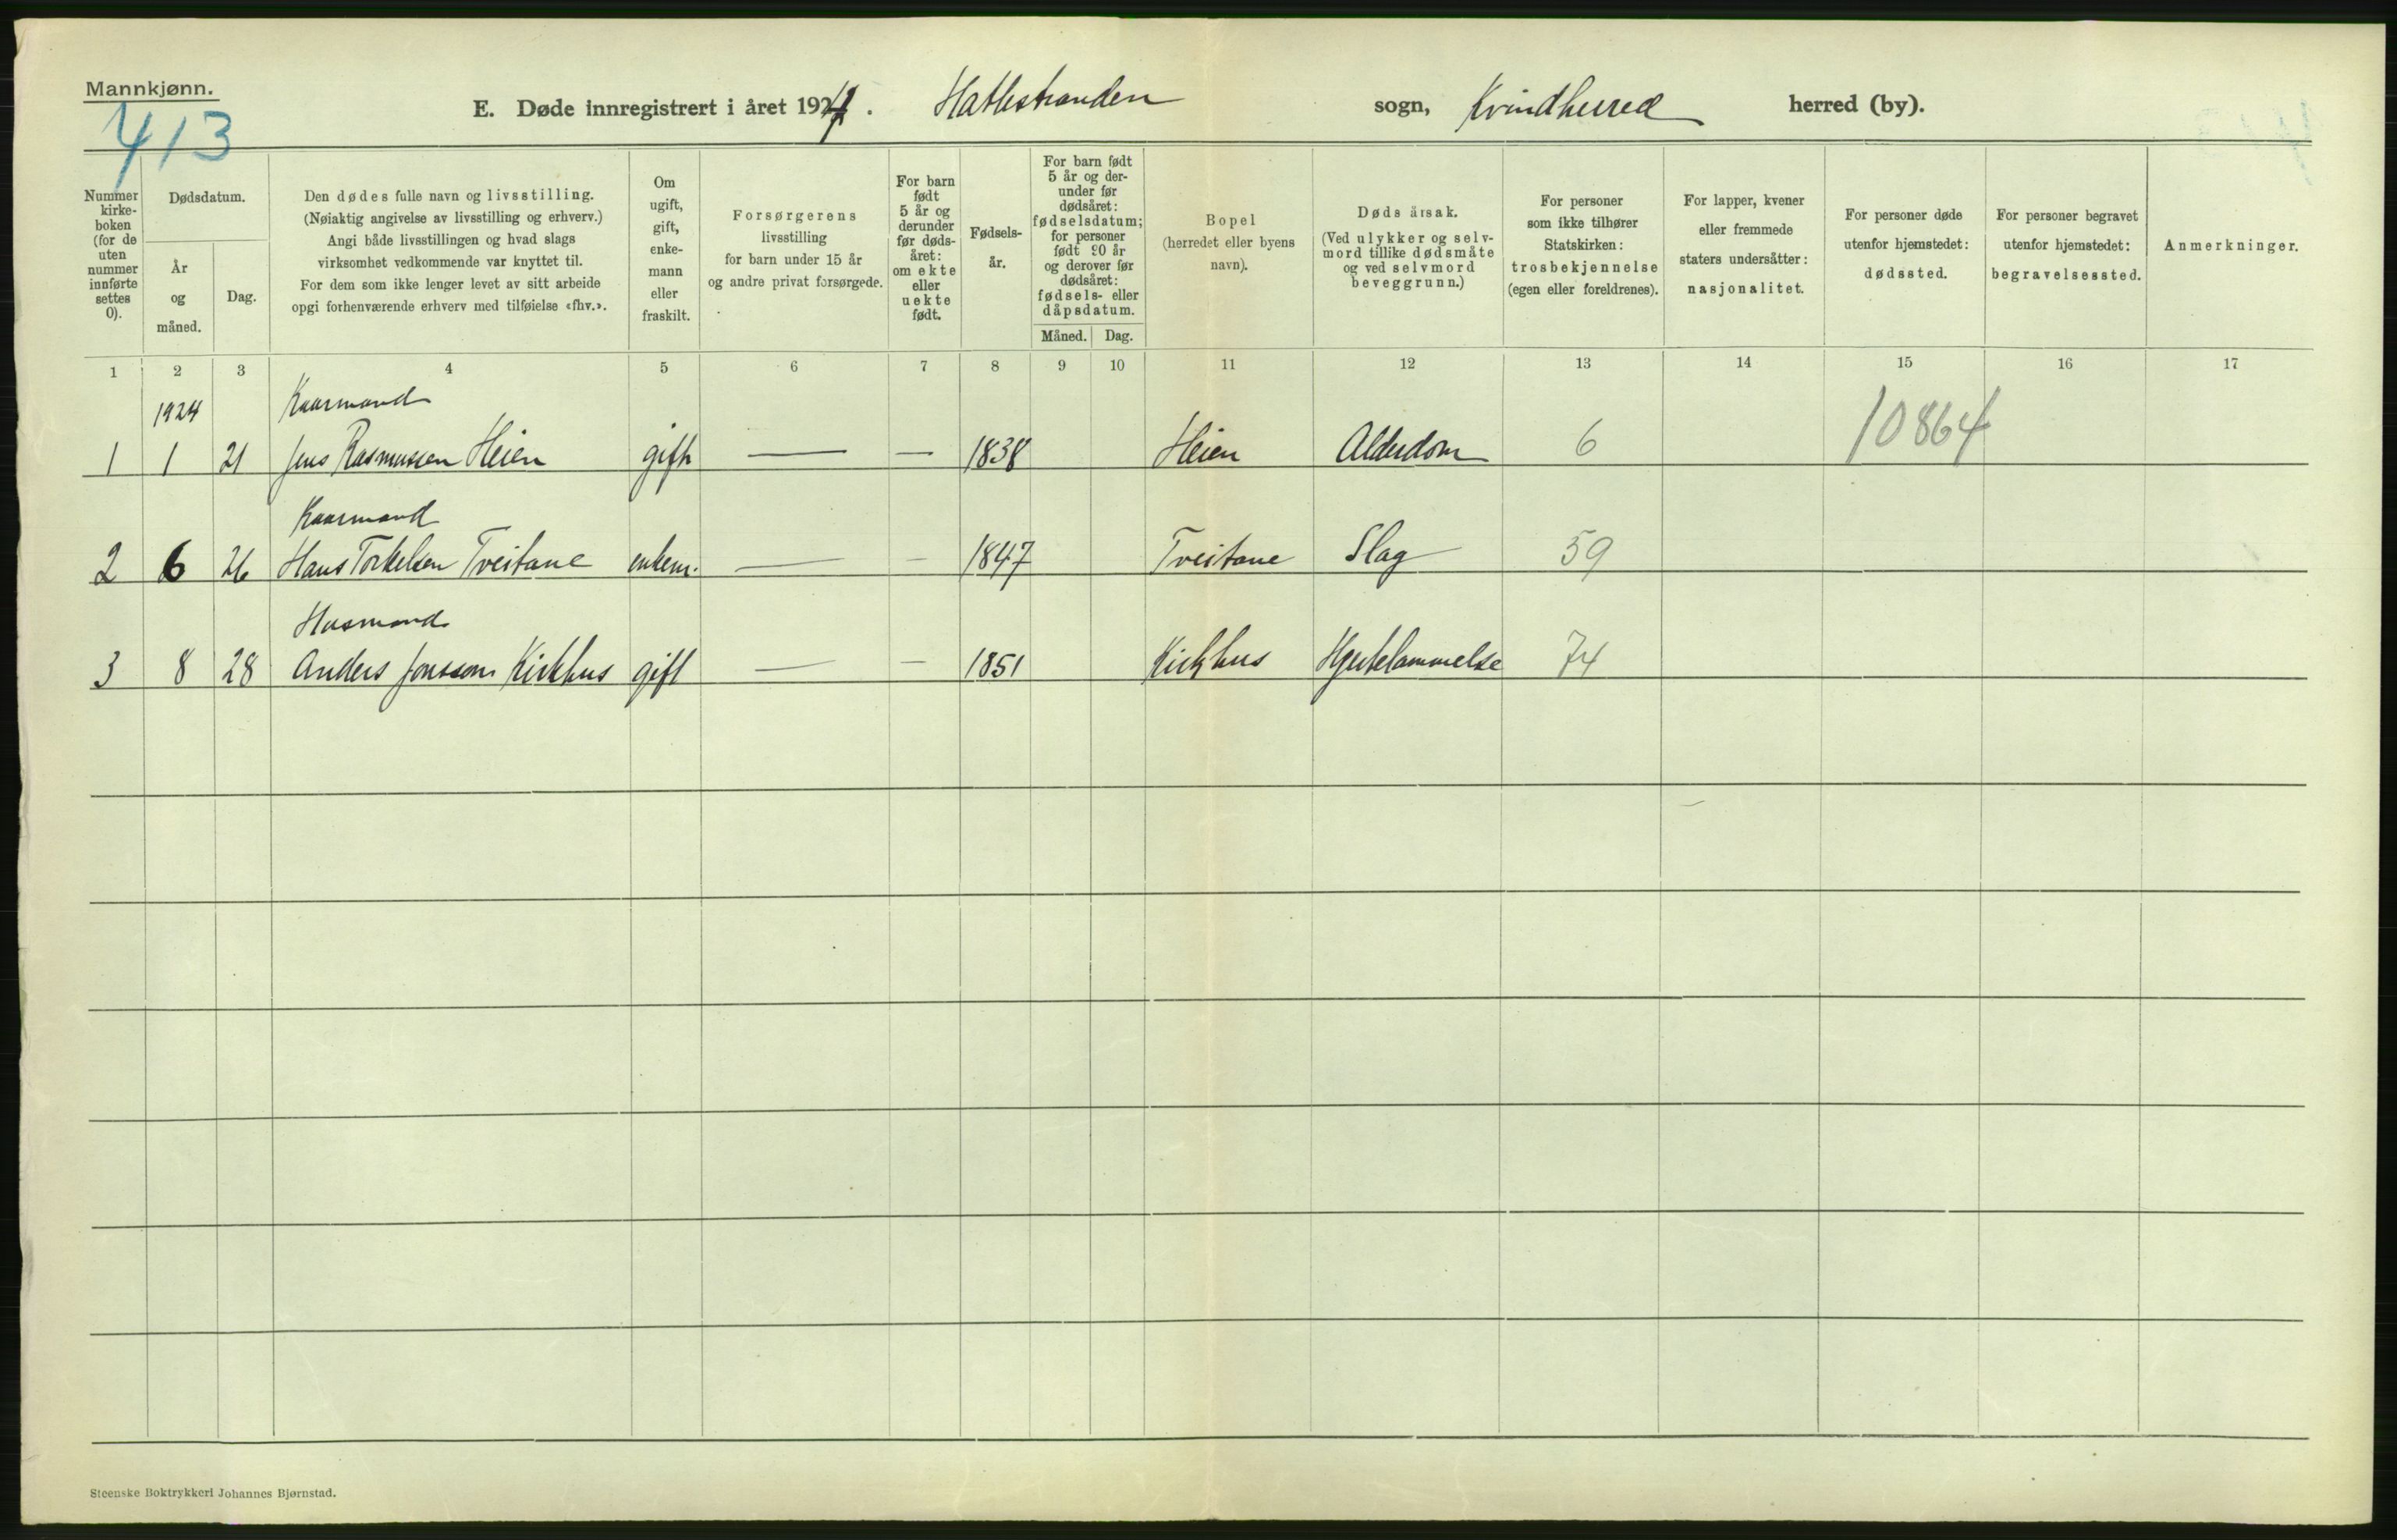 Mannkjønn.
413
E. Døde innregistrert i året 1924. Hatlestranden sogn, Kvindherred herred (by).
Nummer kirke-boken (for de uten nummer innførte settes 0).
Dødsdatum.
År og måned.
Dag.
Den dødes fulle navn og livsstilling.
(Nøiaktig angivelse av livsstilling og erhverv.)
Angi både livsstillingen og hvad slags
virksomhet vedkommende var knyttet til.
For dem som ikke lenger levet av sitt arbeide
opgi forhenværende erhverv med tilføielse «fhv.».
Om ugift, gift, enke-mann eller fraskilt.
Forsørgerens
livsstilling
for barn under 15 år
og andre privat forsørgede.
For barn født 5 år og derunder før døds-året: om ekte eller uekte født.
Fødsels-år.
For barn født 5 år og der-under før dødsåret: fødselsdatum; for personer født 90 år og derover før dødsåret: fødsels- eller dåpsdatum.
Måned. Dag.
Bopel
(herredet eller byens
navn).
Dødsårsak.
(Ved ulykker og selv-
mord tillike dødsmåte
og ved selvmord
beveggrunn.)
For personer
som ikke tilhører
Statskirken:
trosbekjennelse
(egen eller foreldrenes).
For lapper, kvener
eller fremmede
staters undersåtter:
nasjonalitet.
For personer døde
utenfor hjemstedet:
dødssted.
For personer begravet
utenfor hjemstedet:
begravelsessted.
Anmerkninger.
1 2 3 4 5 6 7 8 9 10 11 12 13 14 15 16 17
1924 Kaarmand
1 1 21 Jens Rasmussen Heien gift — — 1838 Heien Alderdom 6 10864
Kaarmand
2 6 26 Hans Torkelsen Tveitane enkem. — — 1847 Tveitane Slag 59
Husmand
3 8 28 Anders Jonsson Kirkhus gift — — 1851 Kirkhus Hjertelammelse 74
Steenske Boktrykkeri Johannes Bjørnstad.